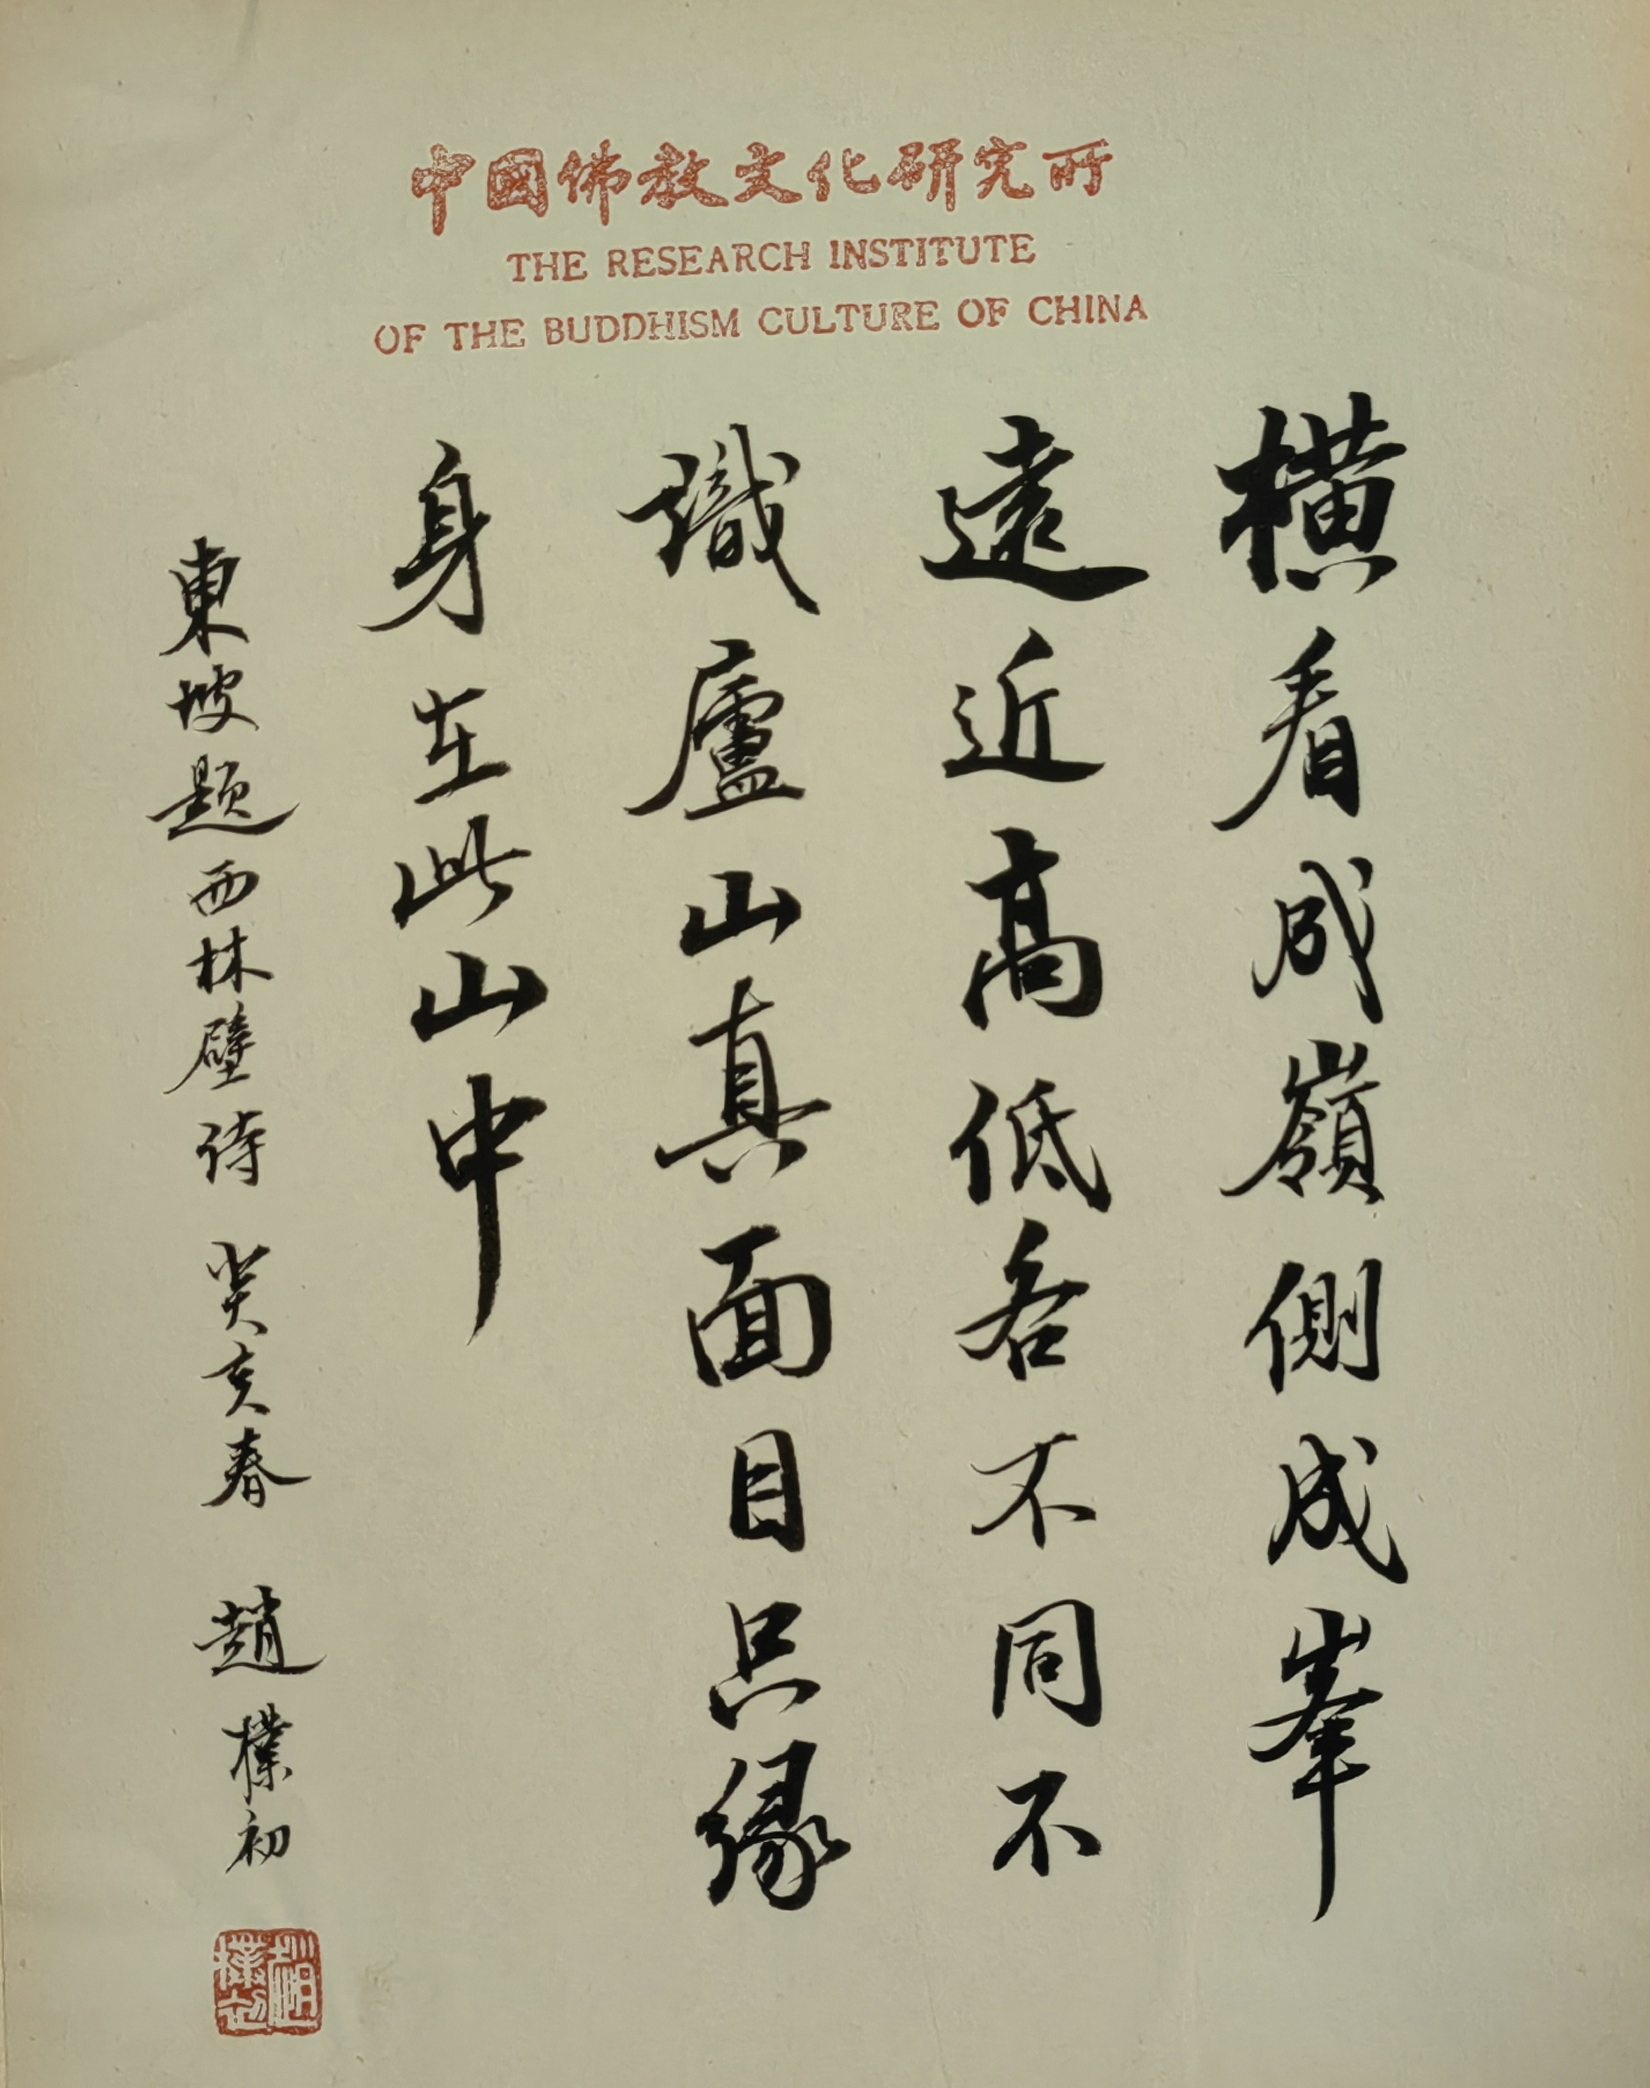 中國佛教文化研究所
THE RESEARCH INSTITUTE
OF THE BUDDHISM CULTURE OF CHINA
橫看成嶺側成峯
遠近高低各不同不
識廬山真面目只緣
身在此山中
東坡题西林壁诗 癸亥春 趙樸初
趙樸初